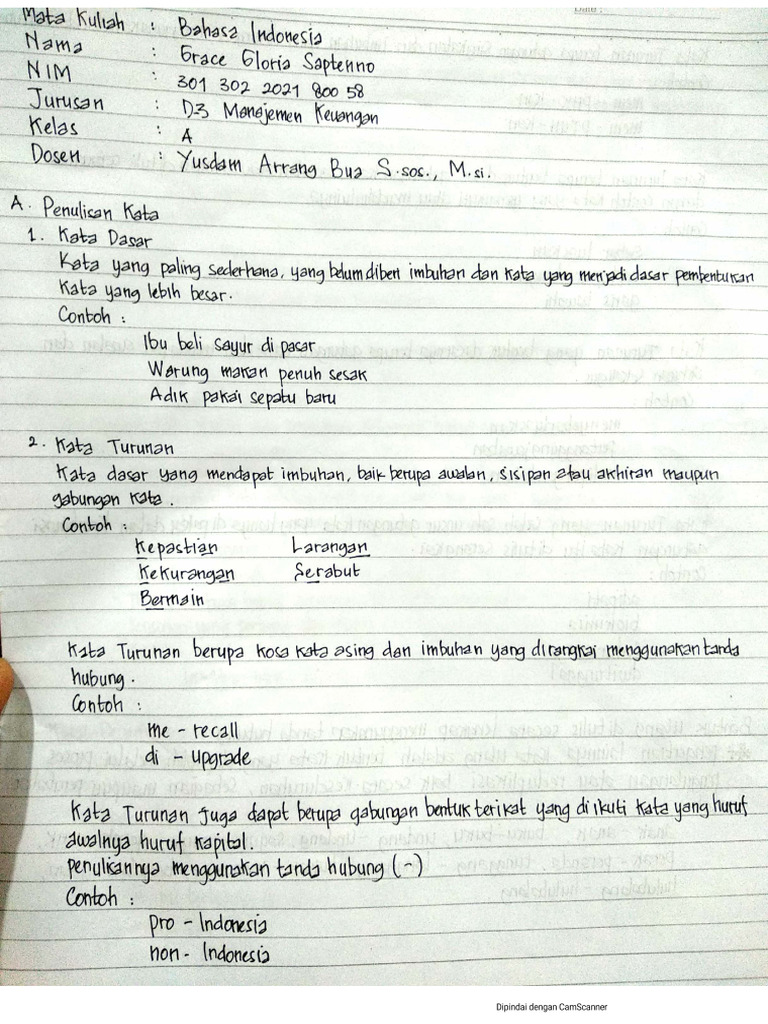 Mata Kuliah : Bahasa Indonesia
Nama : Grace Gloria Saptenno
NIM : 301 302 2021 800 58
Jurusan : D3 Manajemen Keuangan
Kelas : A
Dosen : Yusdam Arrang Bua S.sos., M.si.
A. Penulisan Kata
1. Kata Dasar
Kata yang paling sederhana, yang belum diberi imbuhan dan kata yang menjadi dasar pembentukan
kata yang lebih besar.
Contoh :
Ibu beli sayur di pasar
Warung makan penuh sesak
Adik pakai sepatu baru
2. Kata Turunan
Kata dasar yang mendapat imbuhan, baik berupa awalan, sisipan atau akhiran maupun
gabungan kata.
Contoh :
Kepastian Larangan
Kekurangan Serabut
Bermain
Kata Turunan berupa kosa kata asing dan imbuhan yang dirangkai menggunakan tanda
hubung.
Contoh :
me - recall
di - upgrade
Kata Turunan juga dapat berupa gabungan bentuk terikat yang di ikuti kata yang huruf
awalnya huruf kapital.
penulisannya menggunakan tanda hubung (-)
Contoh :
pro - Indonesia
non - Indonesia
Dipindai dengan CamScanner